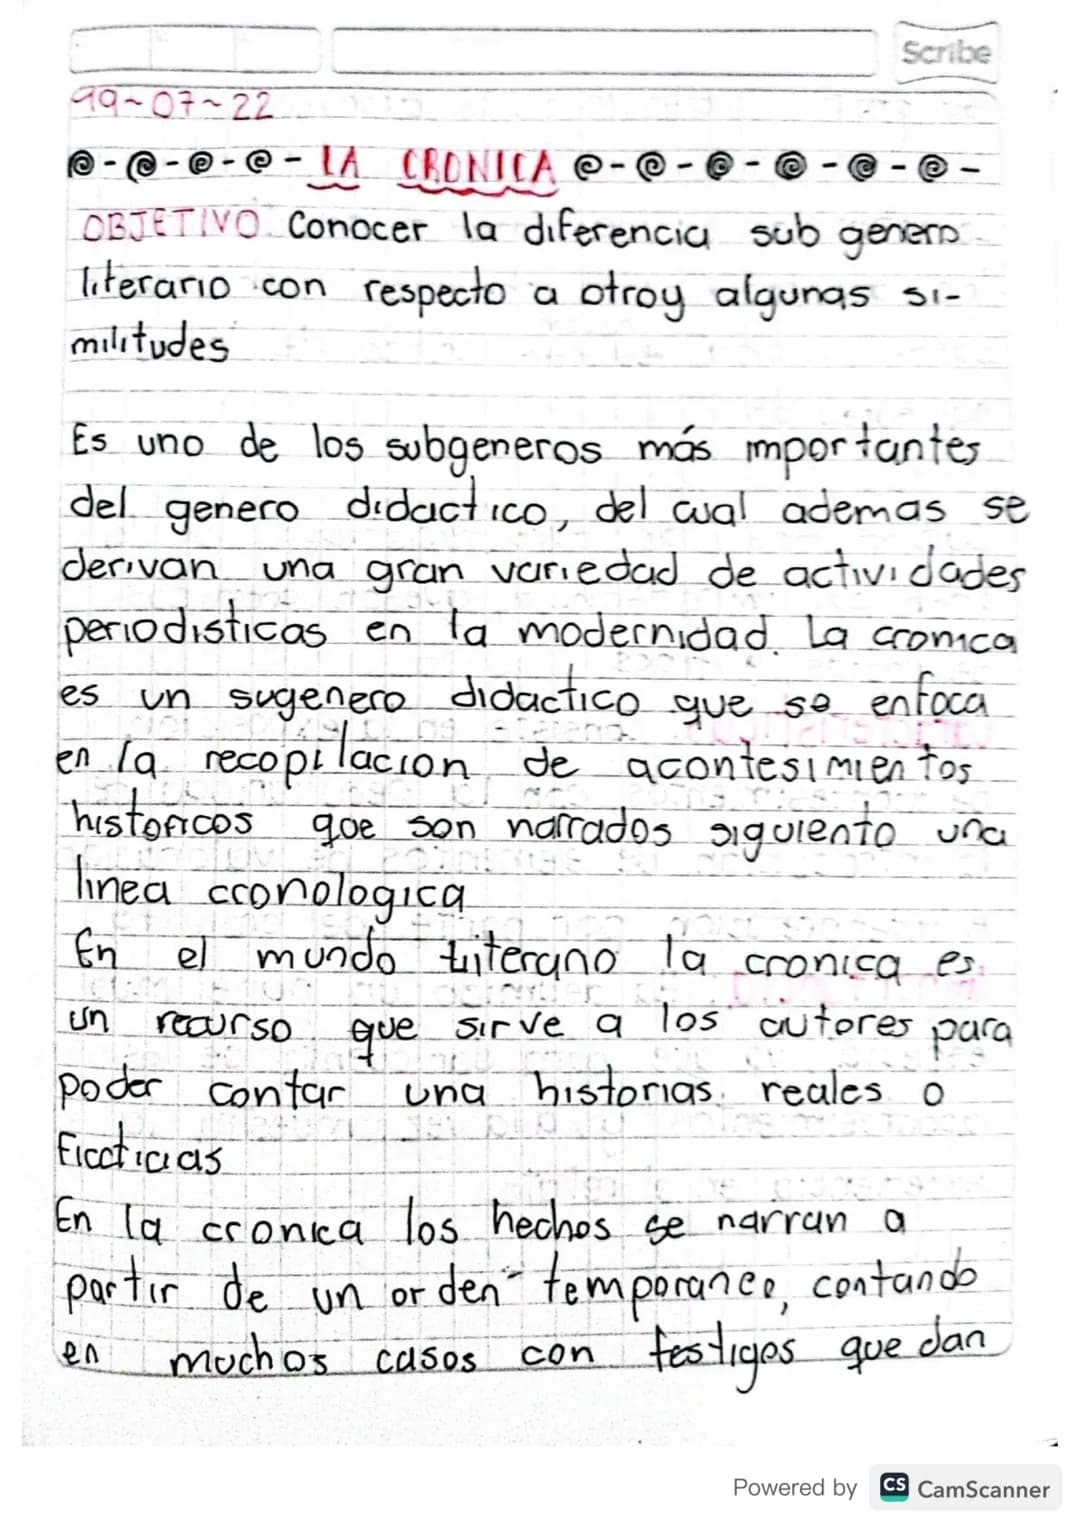 Scribe
19~07~22
@-@-@-@- LA CRONICA @-@-@-@-@-@-
OBJETIVO. Conocer la diferencia sub genero
literario con respecto a otroy algunas si-
militudes
Es uno de los subgeneros más importantes
del genero didactico, del cual ademas se
derivan una gran variedad de actividades
periodisticas en la modernidad. La cronica
es un sugenero didactico que se enfoca
en la recopilacion de acontesimientos
historicos que son narrados siguiento una
linea cronologica
En el mundo literario la cronica es
un recurso que sirve a los autores para
poder contar una historias reales o
Ficcticias
En la cronica los hechos se narran a
partir de un orden temporaneo, contando
en muchos casos con testigos que dan
Powered by CS CamScanner